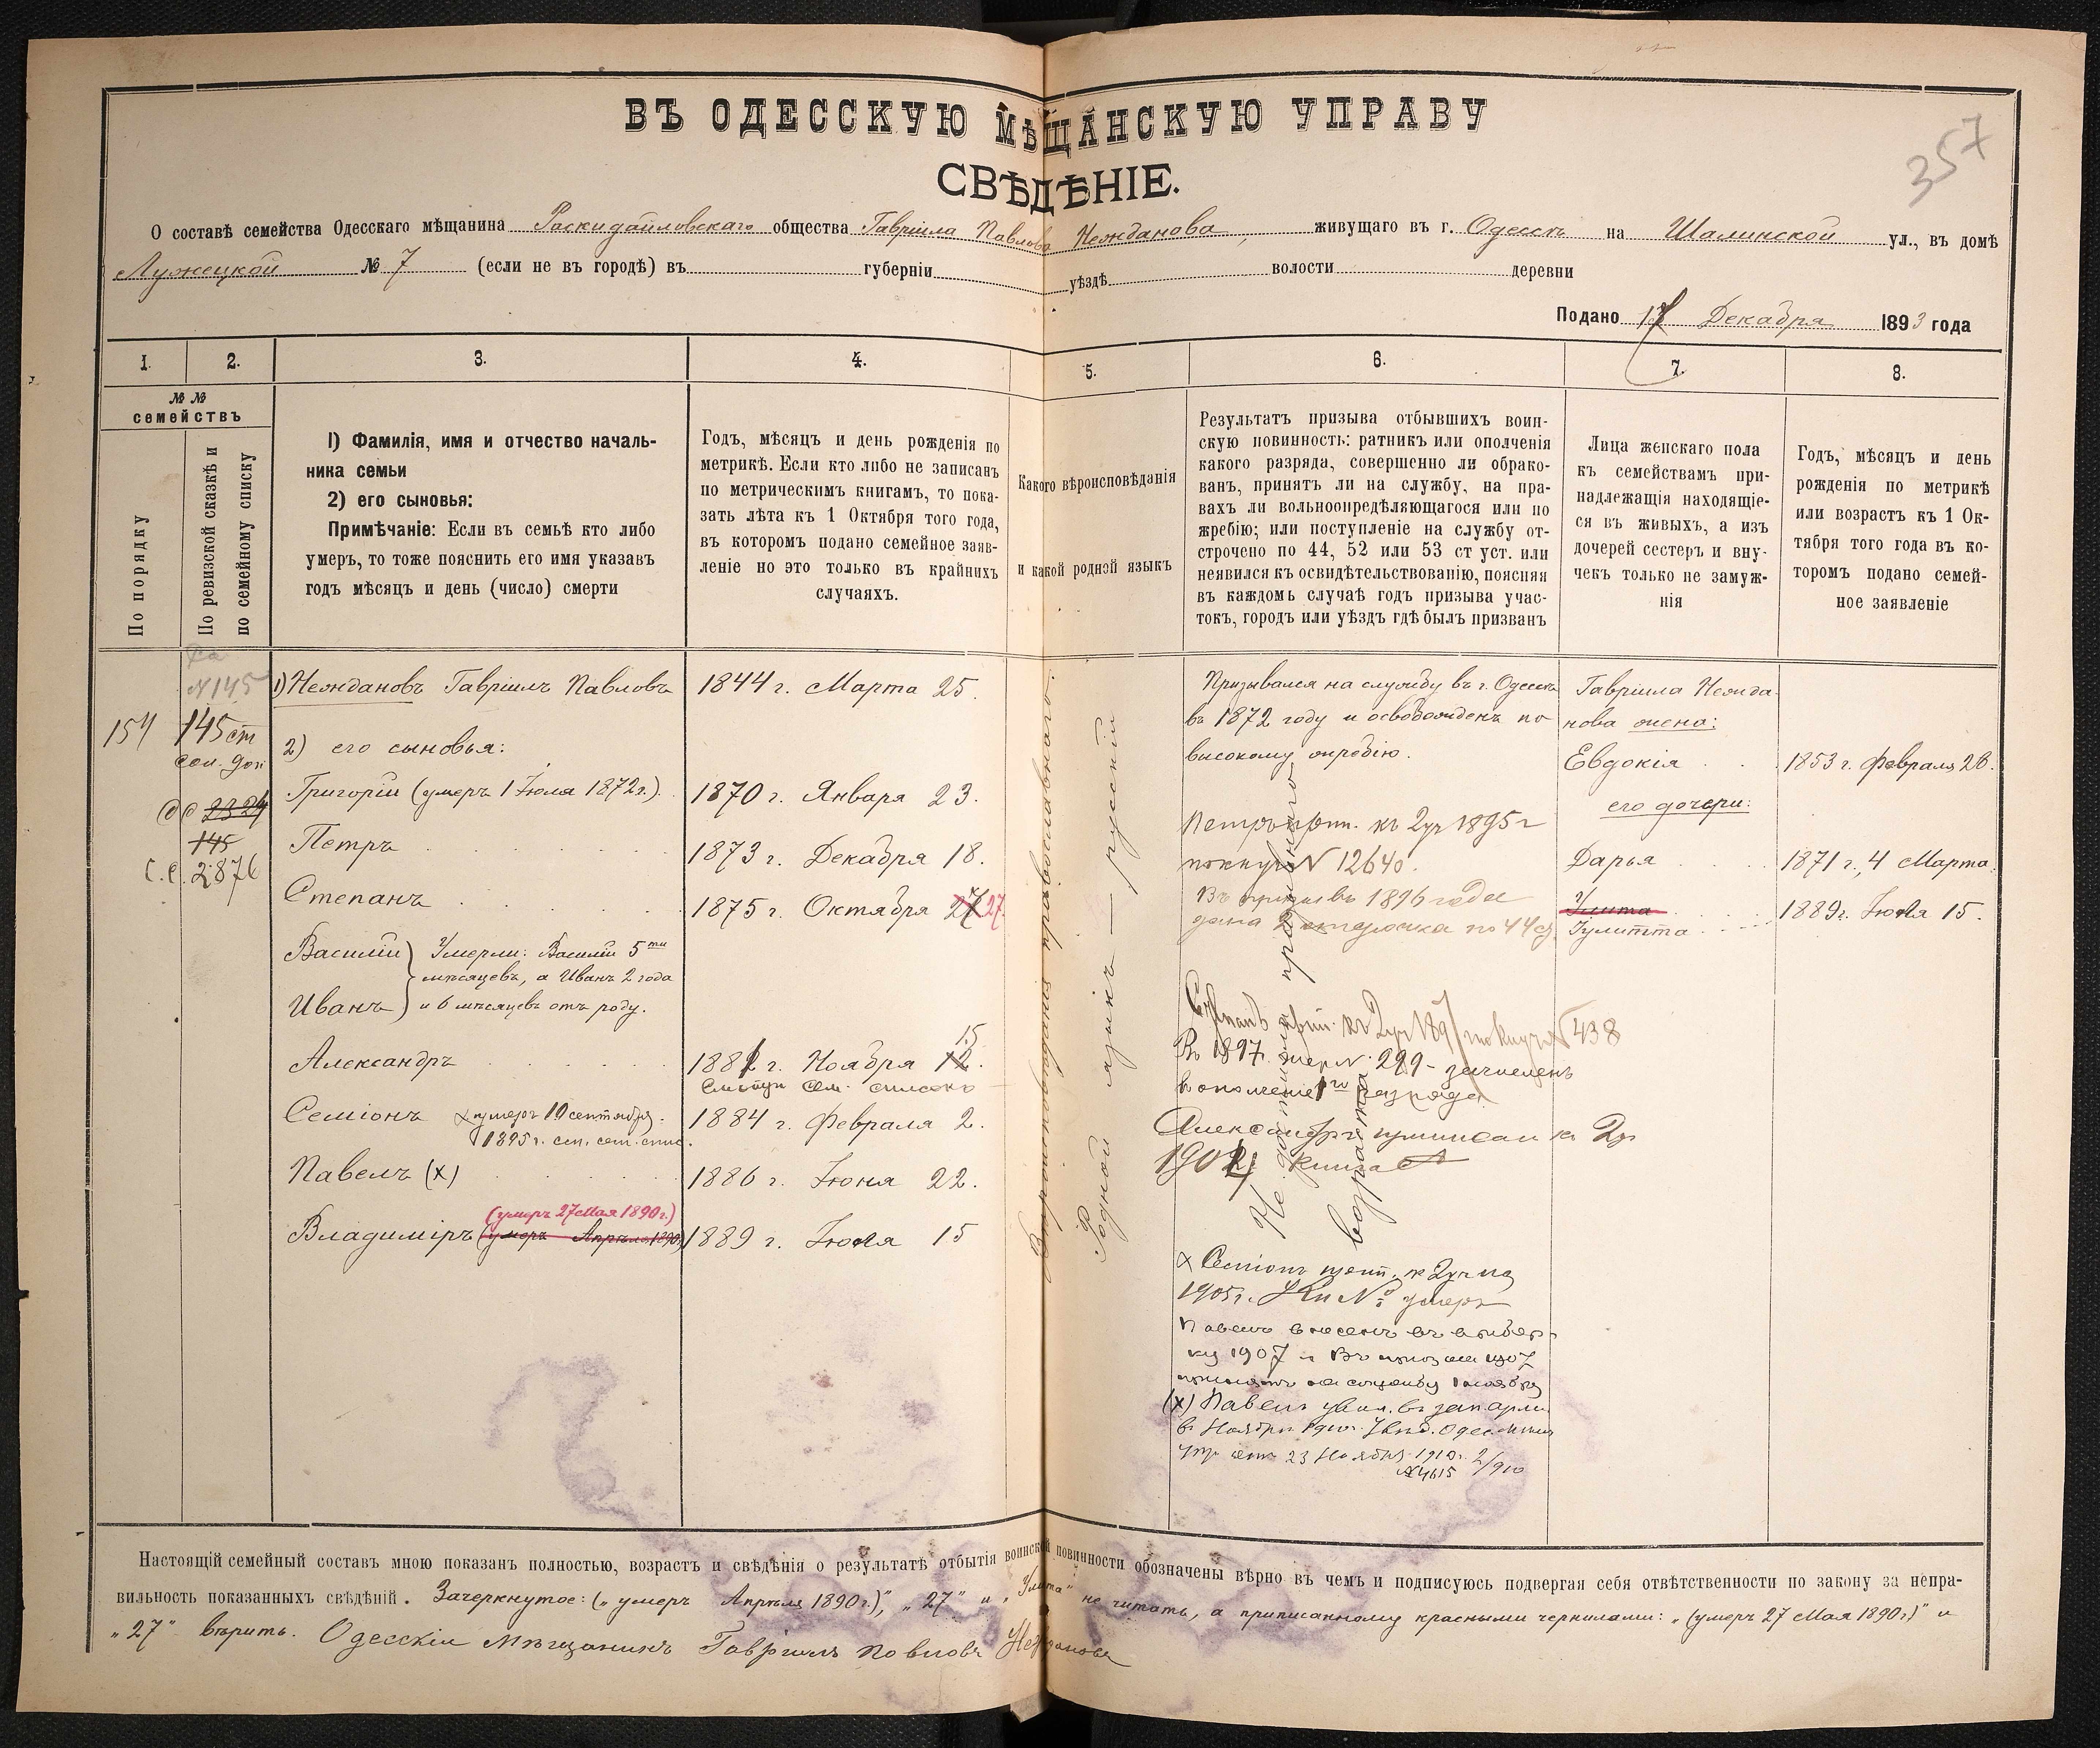 357
ВЪ ОДЕССКУЮ МѢЩАНСКУЮ УПРАВУ
СВѢДѢНІЕ.
О составѣ семейства Одесскаго мѣщанина Раскидайловскаго общества Гавріила Павлова Нежданова, живущаго въ г. Одессѣ на Шалинской ул., въ домѣ
Лужецкой № 7 (если не въ городѣ) въ губерніи уѣздѣ волости деревни
Подано 17 Декабря 1893 года
1. 2. 3. 4. 5. 6. 7. 8.
№ №
семействъ
По порядку
По ревизской сказкѣ и
по семейному списку
1) Фамилія, имя и отчество началь-
ника семьи
2) его сыновья:
Примѣчаніе: Если въ семьѣ кто либо
умеръ, то тоже пояснить его имя указавъ
годъ мѣсяцъ и день (число) смерти
Годъ, мѣсяцъ и день рожденія по
метрикѣ. Если кто либо не записанъ
по метрическимъ книгамъ, то пока-
зать лѣта къ 1 Октября того года,
въ которомъ подано семейное заяв-
леніе но это только въ крайнихъ
случаяхъ.
Какого вѣроисповѣданія
и какой родной языкъ
Результатъ призыва отбывшихъ воин-
скую повинность: ратникъ или ополченія
какого разряда, совершенно ли обрако-
ванъ, принятъ ли на службу, на пра-
вахъ ли вольноопредѣляющагося или по
жребію; или поступленіе на службу от-
строчено по 44, 52 или 53 ст уст. или
неявился къ освидѣтельствованію, поясняя
въ каждомъ случаѣ годъ призыва учас-
токъ, городъ или уѣздъ гдѣ былъ призванъ
Лица женскаго пола
къ семействамъ при-
надлежащія находящіе-
ся въ живыхъ, а изъ
дочерей сестеръ и вну-
чекъ только не замуж-
нія
Годъ, мѣсяцъ и день
рожденія по метрикѣ
или возрастъ къ 1 Ок-
тября того года въ ко-
торомъ подано семей-
ное заявленіе
N 145
154
145 ст
2324
145
С.С. 2876
1) Неждановъ Гавріилъ Павловъ
2) его сыновья:
Григорій (умеръ 1 Іюля 1872 г.)
Петръ
Степанъ
Василій
Иванъ
Умерли: Василій 5ти
мѣсяцевъ, а Иванъ 2 года
и 6 мѣсяцевъ отъ роду.
Александръ
Семіонъ умеръ 10 сентября
1895 г.
Павелъ (х)
(умеръ 27 Мая 1890 г.)
Владиміръ (умеръ Апрѣля 1890 г.)
1844 г. Марта 25.
1870 г. Января 23.
1873 г. Декабря 18.
1875 г. Октября 27 27.
15
1881 г. Ноября 12.
1884 г. Февраля 2.
1886 г. Іюня 22.
1889 г. Іюля 15
Вѣроисповѣданія православнаго.
Родной языкъ — русскій
Призывался на службу въ г. Одессѣ
въ 1872 году и освобожденъ по
высокому жребію.
Не достигли призывного
возраста
Петръ прип. къ 2 уч 1895 г
по книгѣ N 12640.
Въ призывъ 1896 года
дана отсрочка по 44 ст
Степанъ прип. къ 2 уч 1897 по книгѣ N 438
Въ 1897 жер N. 299 - зачисленъ
въ ополченіе 1го разряда
Александръ приписан к 2 уч
1902 книга №
х Семіонъ прип. к 2 уч на
1905 г. Кн № умеръ
Павелъ внесенъ въ
1907 г Въ призыв 1907
принятъ на службу 1 ноября
(х) Павелъ увол. въ зап арміи
в Ноябрѣ 1910 г.
отъ 23 Ноября 1910 г.
N 4615 2/910
Гавріила Нежда-
нова жена:
Евдокія
его дочери:
Дарья
Улита
Іулитта
1853 г. Февраля 28.
1871 г., 4 Марта.
1889 г. Іюля 15.
Настоящій семейный составъ мною показанъ полностью, возрастъ и свѣдѣнія о результатѣ отбытія воинской повинности обозначены вѣрно въ чемъ и подписуюсь подвергая себя отвѣтственности по закону за непра-
вильность показанныхъ свѣдѣній. Зачеркнутое: („умеръ Апрѣля 1890 г.)", „27" и „Улита" не читать, а приписанному красными чернилами: „(умеръ 27 Мая 1890 г.)" и
„27" вѣрить. Одесскій Мѣщанинъ Гавріилъ Повловъ Неждановъ